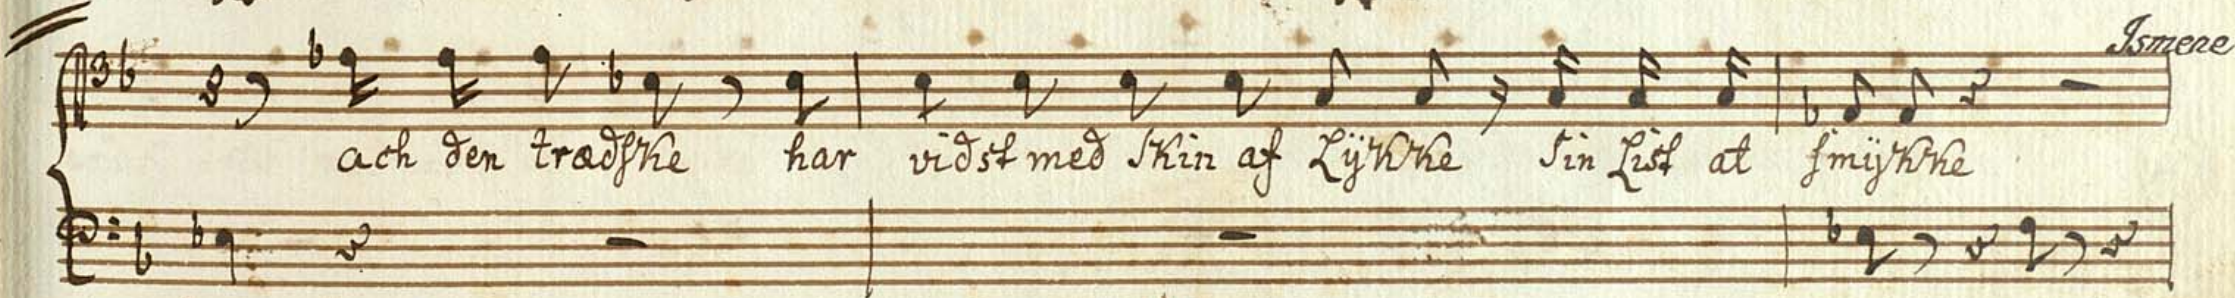 Ismene
ach den trædske har vidst med Skin af Lÿkke Sin List at smÿkke